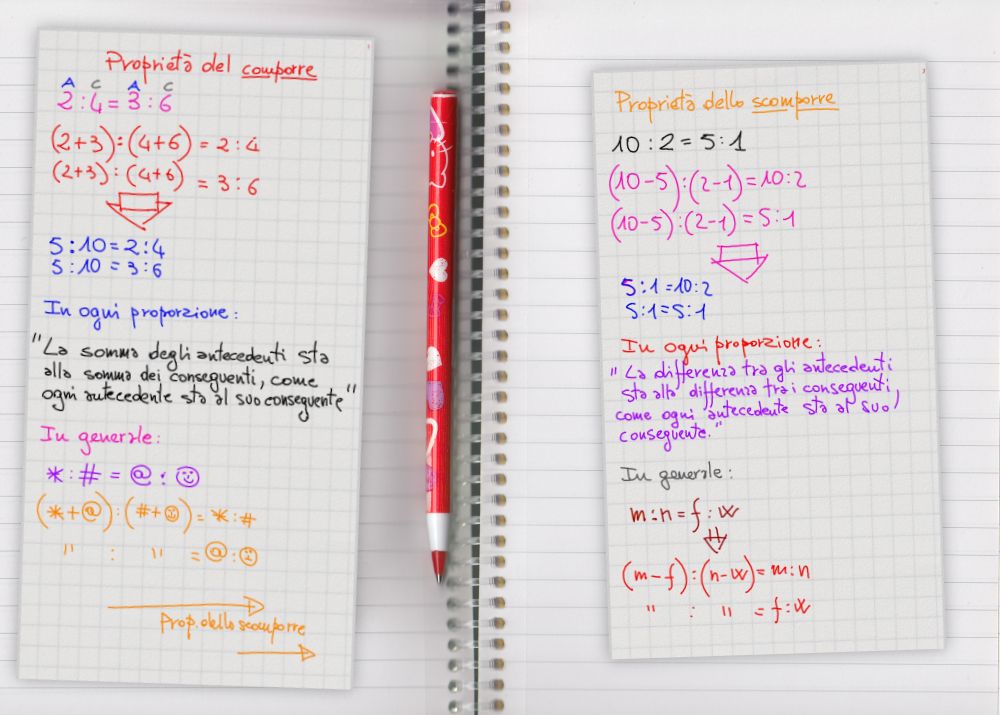 Proprietà del comporre
A C A C
2 : 4 = 3 : 6
(2+3) : (4+6) = 2 : 4
(2+3) : (4+6) = 3 : 6
5 : 10 = 2 : 4
5 : 10 = 3 : 6
In ogni proporzione :
"La somma degli antecedenti sta
alla somma dei conseguenti, come
ogni antecedente sta al suo conseguente"
In generale :
* : # = @ : ☺
(* + @) : (# + ☺) = * : #
" : " = @ : ☺
Prop. dello scomporre
Proprietà dello scomporre
10 : 2 = 5 : 1
(10-5) : (2-1) = 10 : 2
(10-5) : (2-1) = 5 : 1
5 : 1 = 10 : 2
5 : 1 = 5 : 1
In ogni proporzione :
"La differenza tra gli antecedenti
sta alla differenza tra i conseguenti,
come ogni antecedente sta al suo
conseguente."
In generale :
m : n = f : w
(m-f) : (n-w) = m : n
" : " = f : w